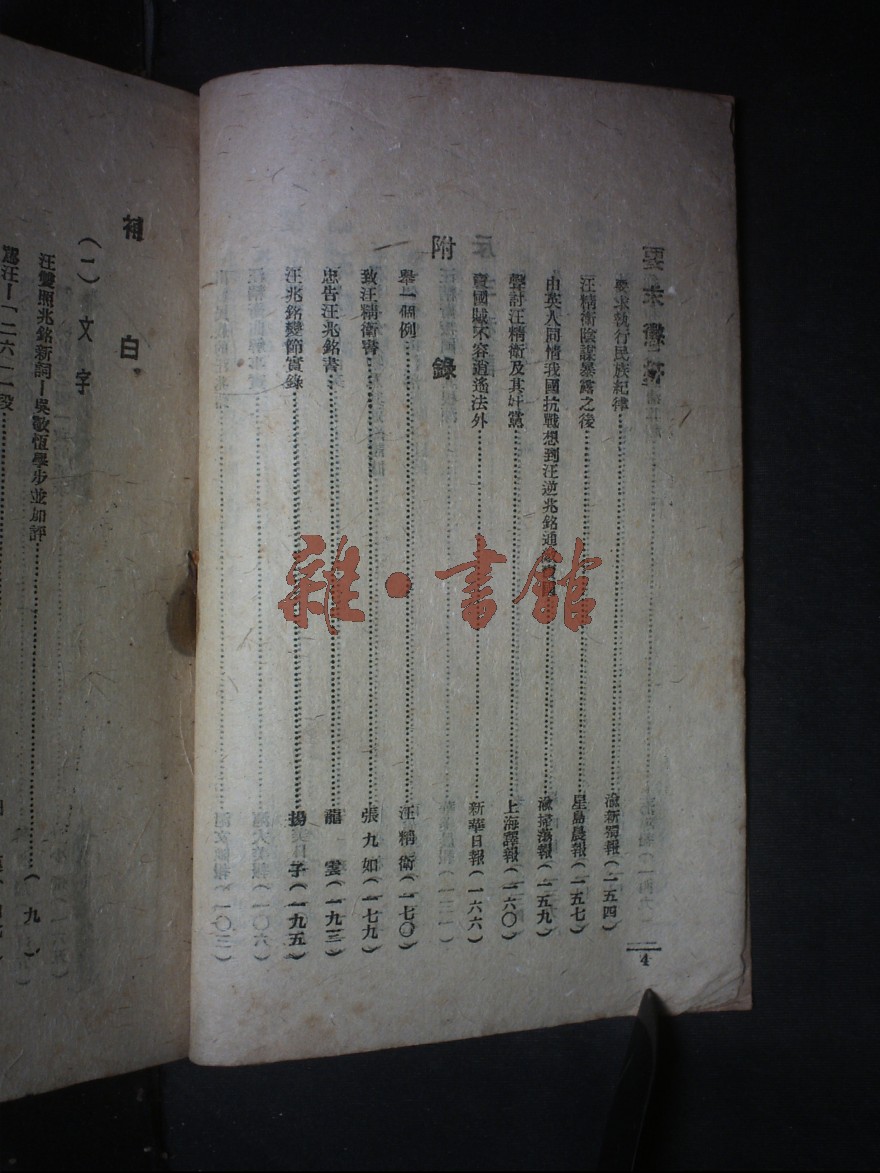 要求懲辦
要求執行民族紀律………渝新蜀報(一五四)
汪精衛陰謀暴露之後………星島晨報(一五七)
由英人同情我國抗戰想到汪逆兆銘通敵………渝掃蕩報(一五九)
聲討汪精衛及其奸黨………上海譯報(一六〇)
賣國賊不容逍遙法外………新華日報(一六六)
附錄
舉一個例………汪精衛(一七〇)
致汪精衛書………張九如(一七九)
忠告汪兆銘書………龍雲(一九三)
汪兆銘變節實錄………揚子(一九五)
4
補白
(二)文字
汪雙照兆銘新詞—吳敬恆學步並加評………(九)
罵汪—「二六」一段
雜·書館